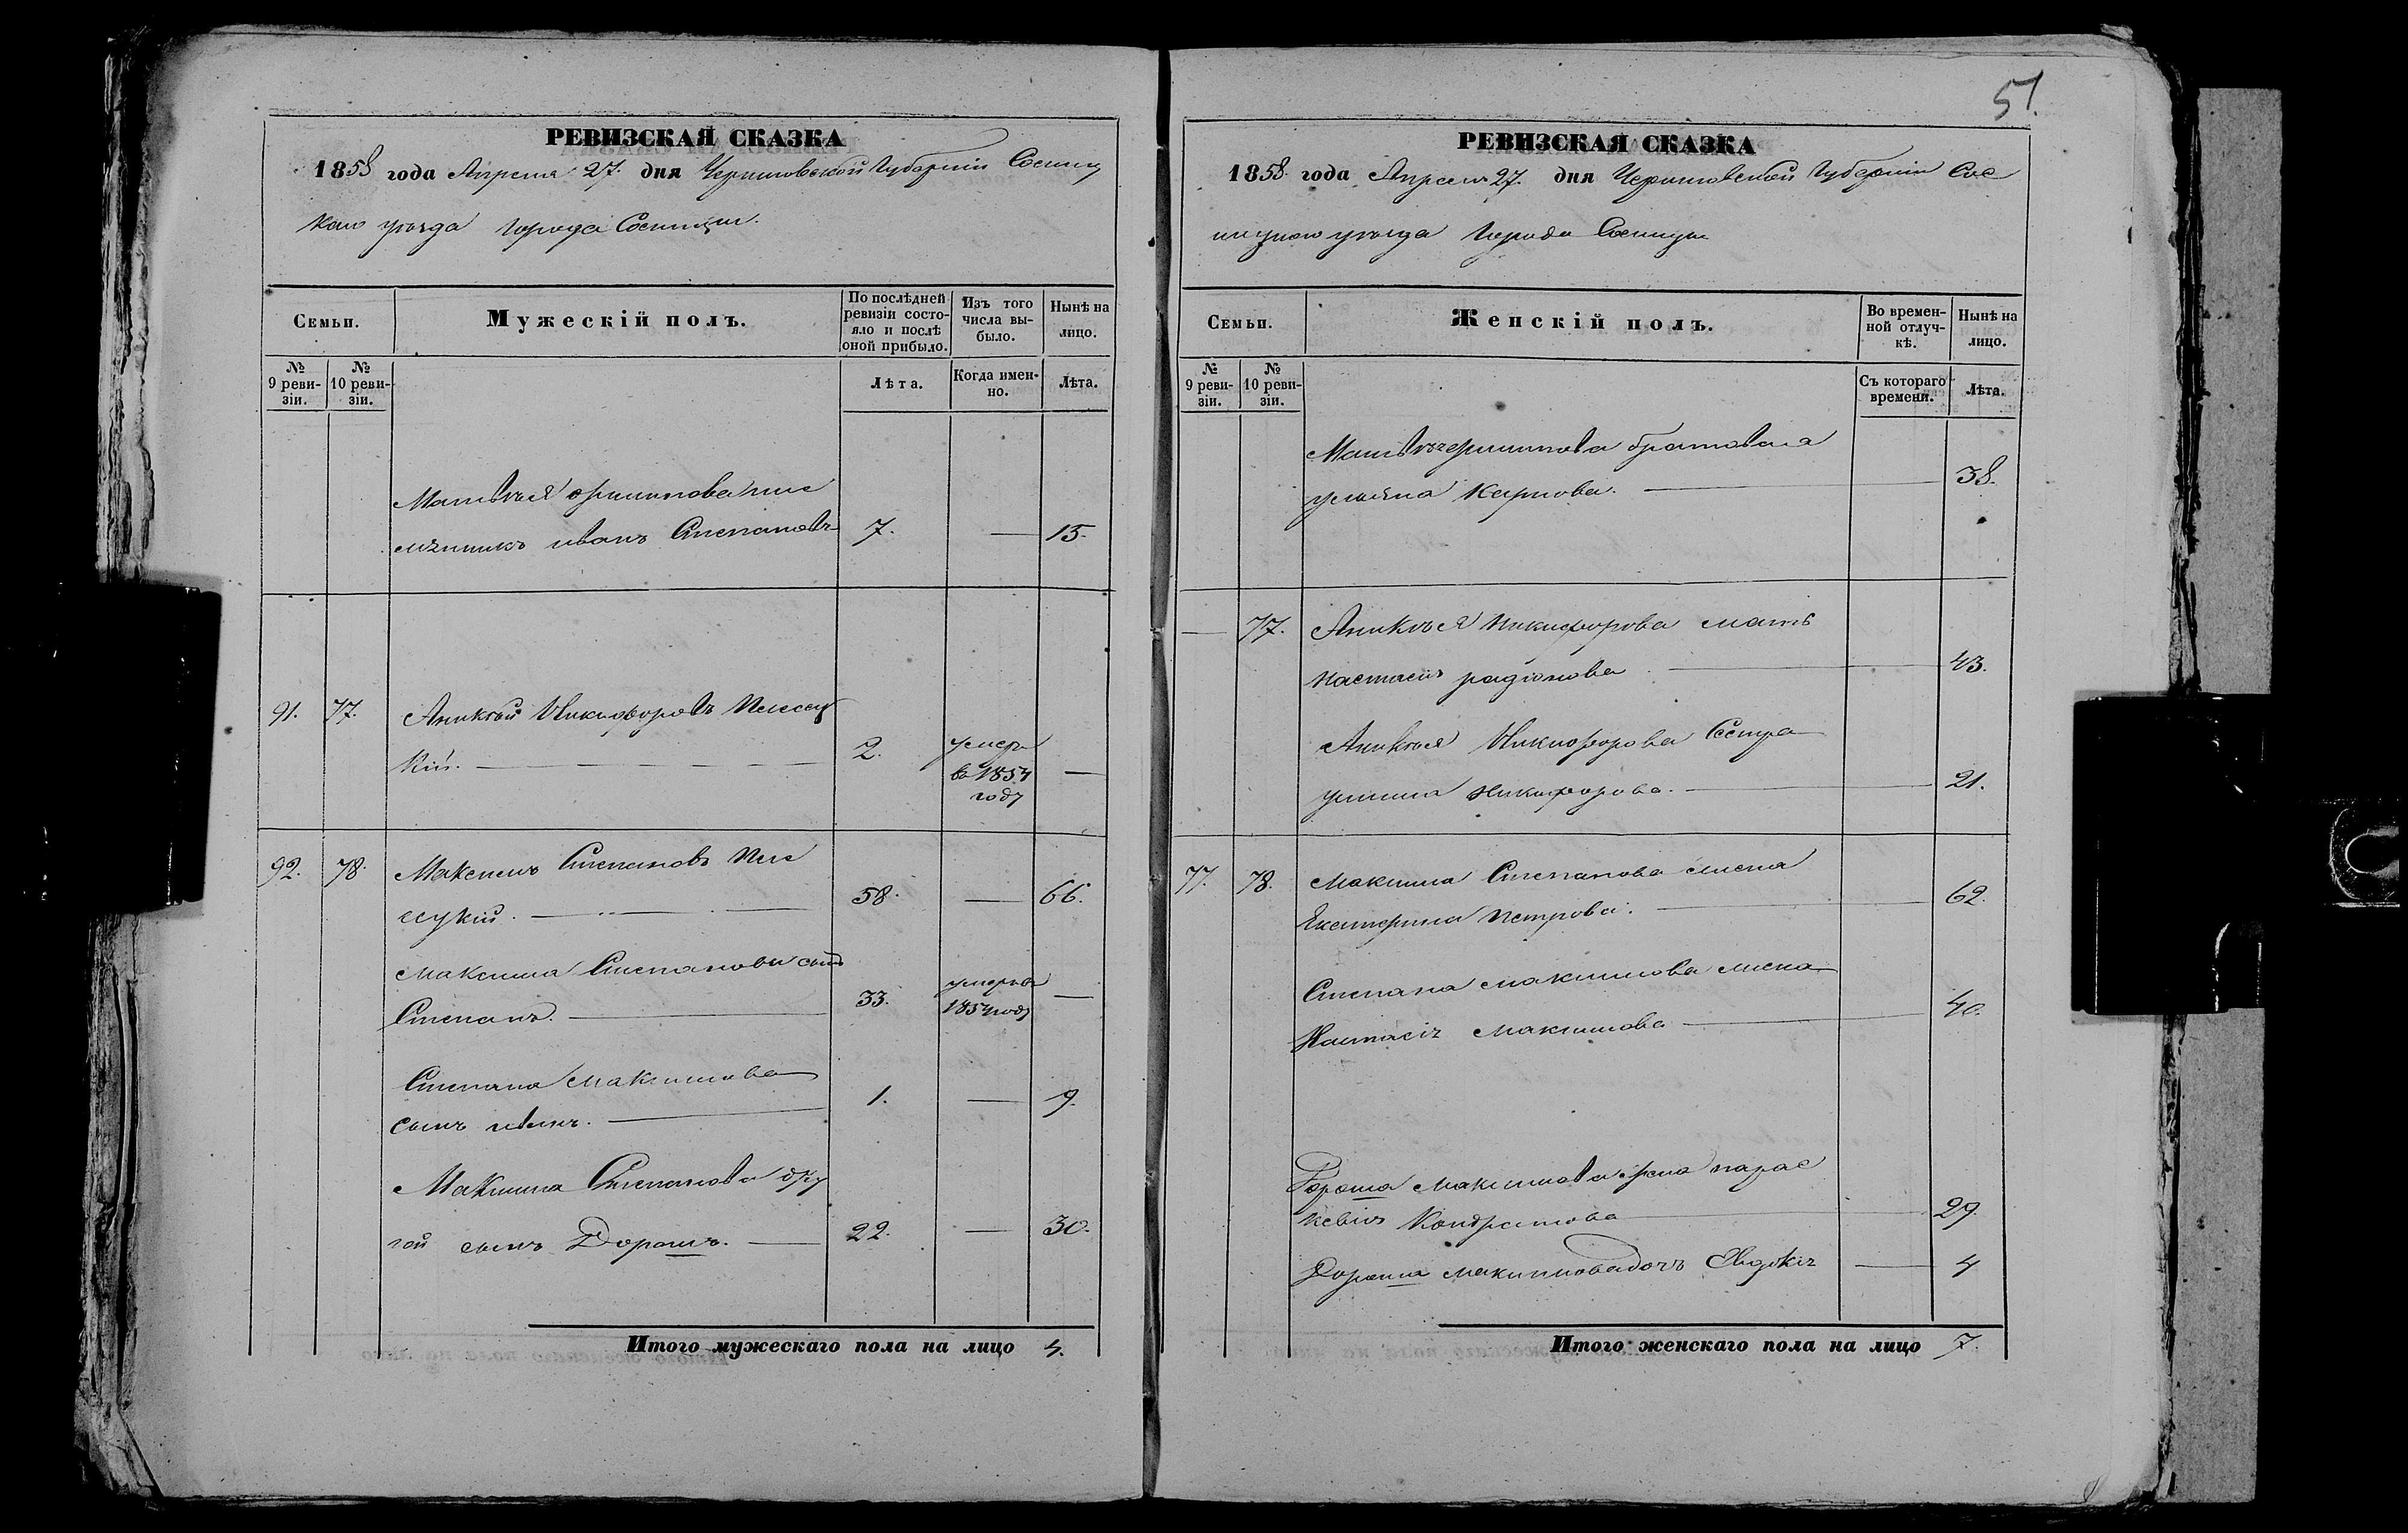 51.
РЕВИЗСКАЯ СКАЗКА
1858 года Апреля 27. дня Черниговской Губернiи Сосниц
каго уѣзда города Сосницы.
Семьи.
Мужескiй полъ.
По послѣдней ревизiи состо-
яло и послѣ
оной прибыло.
Изъ того
числа вы-
было.
Нынѣ на
лицо.
№
9 реви-
зiи.
№
10 реви-
зiи.
Лѣта.
Когда имен-
но.
Лѣта.
племѣнникъ иванъ Степановъ 7. — 15.
91. 77. Аникѣй Никифоровъ
кiй. 2. умеръ
въ 1854 —
году
92. 78. Максимъ Степановъ
58. — 66.
Максима Степанова сынъ
Степанъ. 33. умеръ въ
1854 году —
Степана Максимова
сынъ иванъ. 1. — 9.
Максима Степанова дру
гой сынъ Дорошъ. 22. — 30.
Итого мужескаго пола на лицо 4.
РЕВИЗСКАЯ СКАЗКА
1858 года Апреля 27. дня Черниговской Губернiи Сос
ницкаго уѣзда Города Сосницы
Семьи.
Женскiй полъ.
Во времен-
ной отлуч-
кѣ.
Нынѣ на
лицо.
№
9 реви-
зiи.
№
10 реви-
зiи.
Съ котораго
времени.
Лѣта.
братова
ульяна Карпова. 38.
— 77. Аникѣя Никифорова мать
настасiя радiонова 43.
Аникѣя Никифорова Сестра
Никифорова. 21.
77. 78. Максима Степанова жена
Екатерина Петрова. 62.
Степана Максимова жена
Настасiя Максимова 40.
Дороша Максимова жена парас
кевiя Кондратова 29.
Дороша Максимова дочь Евдокiя — 4
Итого женскаго пола на лицо 7.